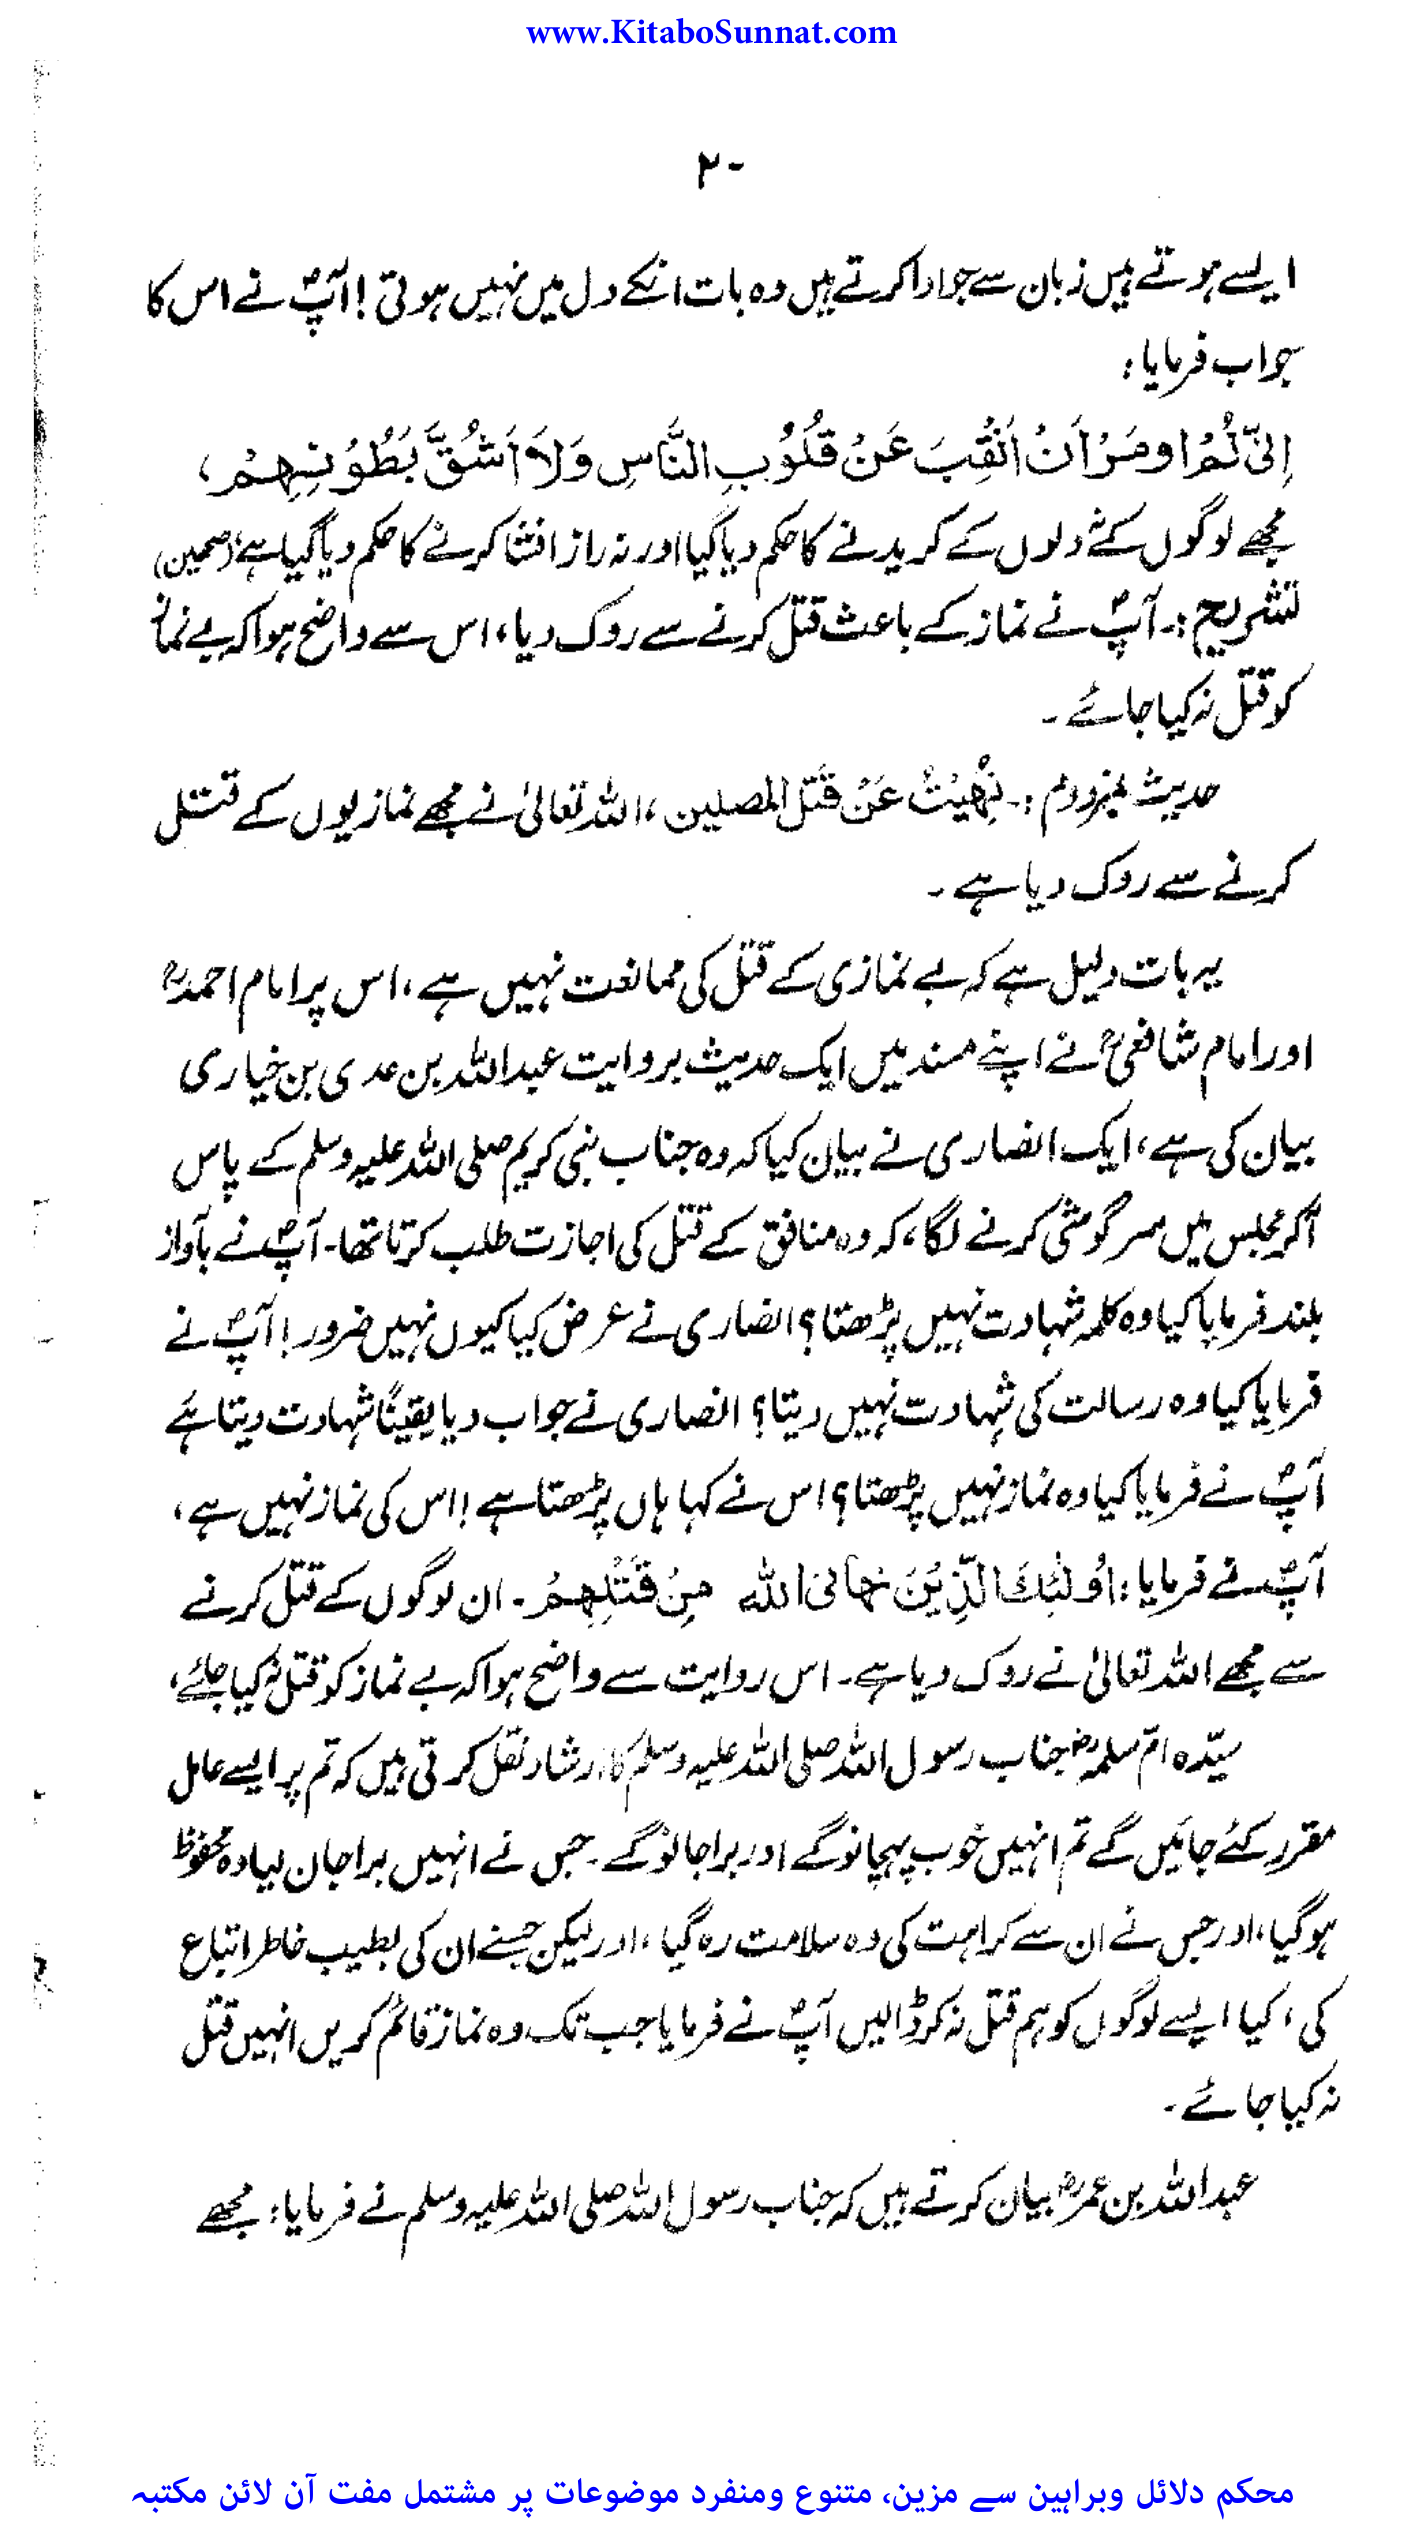 www.KitaboSunnat.com
۲۰
ایسے ہوتے ہیں زبان سے جو ادا کرتے ہیں وہ بات انکے دل میں نہیں ہوتی ! آپؐ نے اس کا
جواب فرمایا :
اِنِّیْ لَمْ اومَرْ اَنْ اَنْقُبَ عَنْ قُلُوْبِ النَّاسِ وَلَا اَشُقَّ بَطُوْنِهِمْ ،
مجھے لوگوں کے نہ دلوں کے کریدنے کا حکم دیا گیا اور نہ راز افشا کرنے کا حکم دیا گیا ہے (صحیحین)
تشریح :۔ آپؐ نے نماز کے باعث قتل کرنے سے روک دیا ، اس سے واضح ہوا کہ بے نماز
کو قتل نہ کیا جائے ۔
حدیث نمبر دوم :۔ نُهِيْتُ عَنْ قَتْلِ المصلین ، اللہ تعالیٰ نے مجھے نمازیوں کے قتل
کرنے سے روک دیا ہے ۔
یہ بات دلیل ہے کہ بے نمازی کے قتل کی ممانعت نہیں ہے ، اس پر امام احمدؒ
اور امام شافعیؒ نے اپنے مسند میں ایک حدیث بروایت عبداللہ بن عدی بن خیاری
بیان کی ہے ، ایک انصاری نے بیان کیا کہ وہ جناب نبی کریم صلی اللہ علیہ وسلم کے پاس
آکر مجلس میں سرگوشی کرنے لگا ، کہ وہ منافق کے قتل کی اجازت طلب کرتا تھا۔ آپؐ نے بآواز
بلند فرمایا کیا وہ کلمہ شہادت نہیں پڑھتا ؟ انصاری نے عرض کیا کیوں نہیں ضرور ! آپؐ نے
فرمایا کیا وہ رسالت کی شہادت نہیں دیتا ؟ انصاری نے جواب دیا یقیناً شہادت دیتا ہے
آپؐ نے فرمایا کیا وہ نماز نہیں پڑھتا ؟ اس نے کہا ہاں پڑھتا ہے ! اس کی نماز نہیں ہے ،
آپؐ نے فرمایا : اُولٰٓئِكَ الَّذِيْنَ نهانی الله مِنْ قَتْلِهِمْ ۔ ان لوگوں کے قتل کرنے
سے مجھے اللہ تعالیٰ نے روک دیا ہے۔ اس روایت سے واضح ہوا کہ بے نماز کو قتل نہ کیا جائے ،
سیّدہ امّ سلمہؓ جناب رسول اللہ صلی اللہ علیہ وسلم کا ارشاد نقل کرتی ہیں کہ تم پر ایسے عامل
مقرر کئے جائیں گے تم انہیں خوب پہچانو گے اور برا جانو گے ۔ جس نے انہیں برا جان لیا وہ محفوظ
ہو گیا ، اور جس نے ان سے کراہت کی وہ سلامت رہ گیا ، اور لیکن جسنے ان کی بطیب خاطر اتباع
کی ، کیا ایسے لوگوں کو ہم قتل نہ کر ڈالیں آپؐ نے فرمایا جب تک وہ نماز قائم کریں انہیں قتل
نہ کیا جائے ۔
عبداللہ بن عمرؓ بیان کرتے ہیں کہ جناب رسول اللہ صلی اللہ علیہ وسلم نے فرمایا : مجھے
محکم دلائل وبراہین سے مزین، متنوع ومنفرد موضوعات پر مشتمل مفت آن لائن مکتبہ